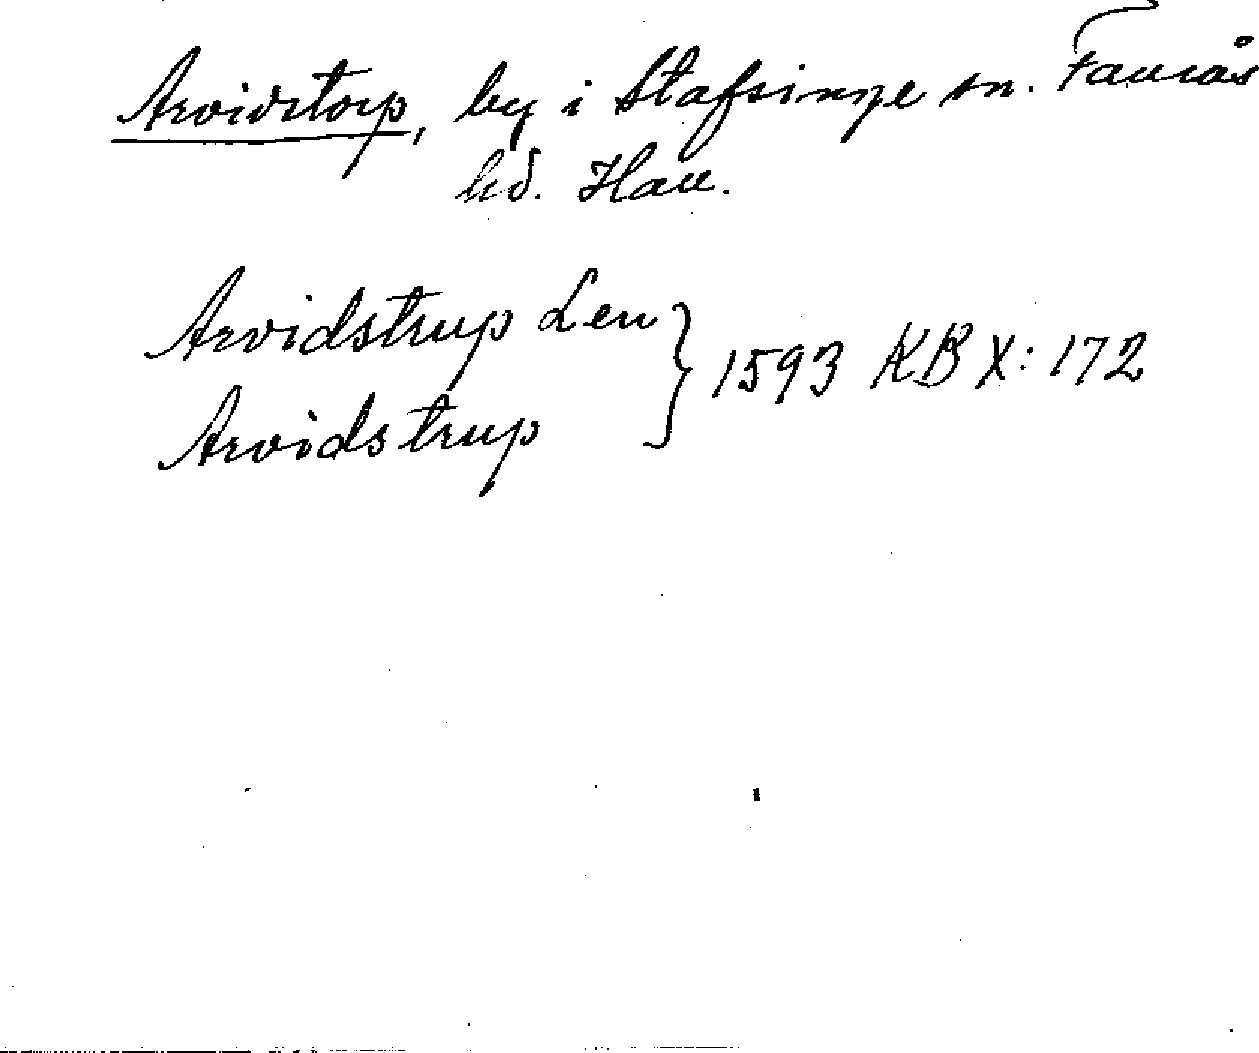 Arvidstorp, by i Stafsinge sn. Faurås
hd. Hall.
Arvidstrup Len
Arvidstrup } 1593 KB X: 172